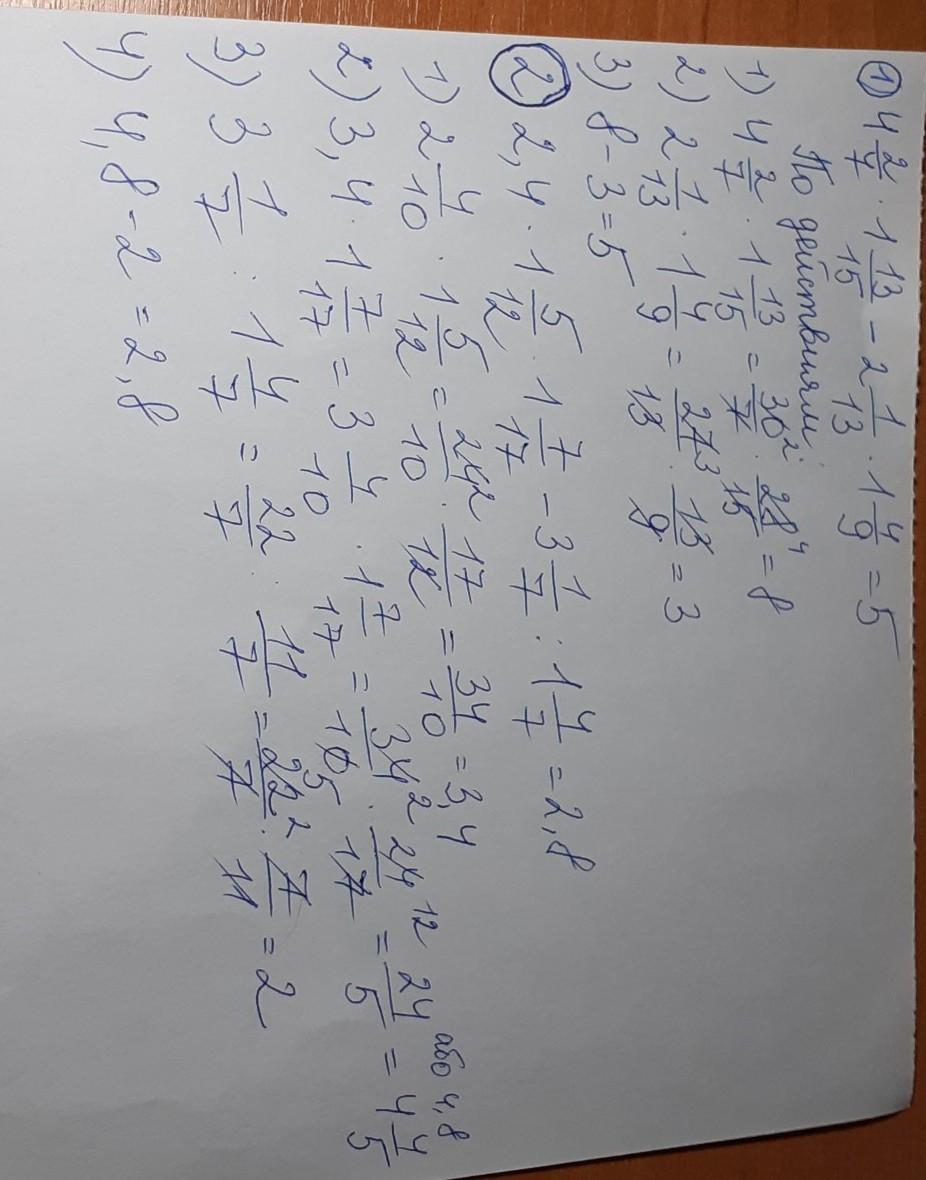 ① 4 2/7 · 1 13/15 - 2 1/13 · 1 4/9 = 5
По действиям:
1) 4 2/7 · 1 13/15 = 30²/7 · 28⁴/15 = 8
2) 2 1/13 · 1 4/9 = 27³/13 · 13/9 = 3
3) 8 - 3 = 5
② 2,4 · 1 5/12 · 1 7/17 - 3 1/7 : 1 4/7 = 2,8
1) 2 4/10 · 1 5/12 = 24²/10 · 17/12 = 34/10 = 3,4
2) 3,4 · 1 7/17 = 3 4/10 · 1 7/17 = 34²/10⁵ · 24¹²/17 = 24/5 = 4 4/5 або 4,8
3) 3 1/7 : 1 4/7 = 22/7 : 11/7 = 22²/7 · 7/11 = 2
4) 4,8 - 2 = 2,8